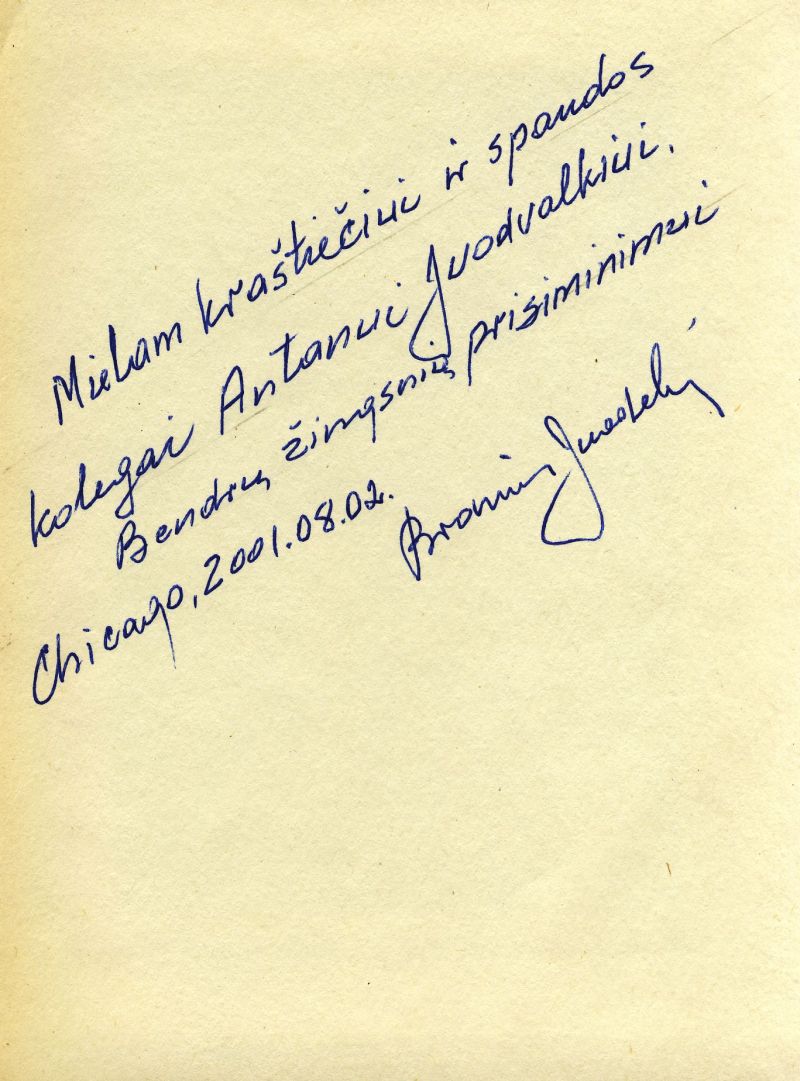 Mielam kraštiečiui ir spaudos
kolegai Antanui Juodvalkiui.
Bendrų žingsnių prisiminimui
Chicago, 2001.08.02.
Bronius Juodelis